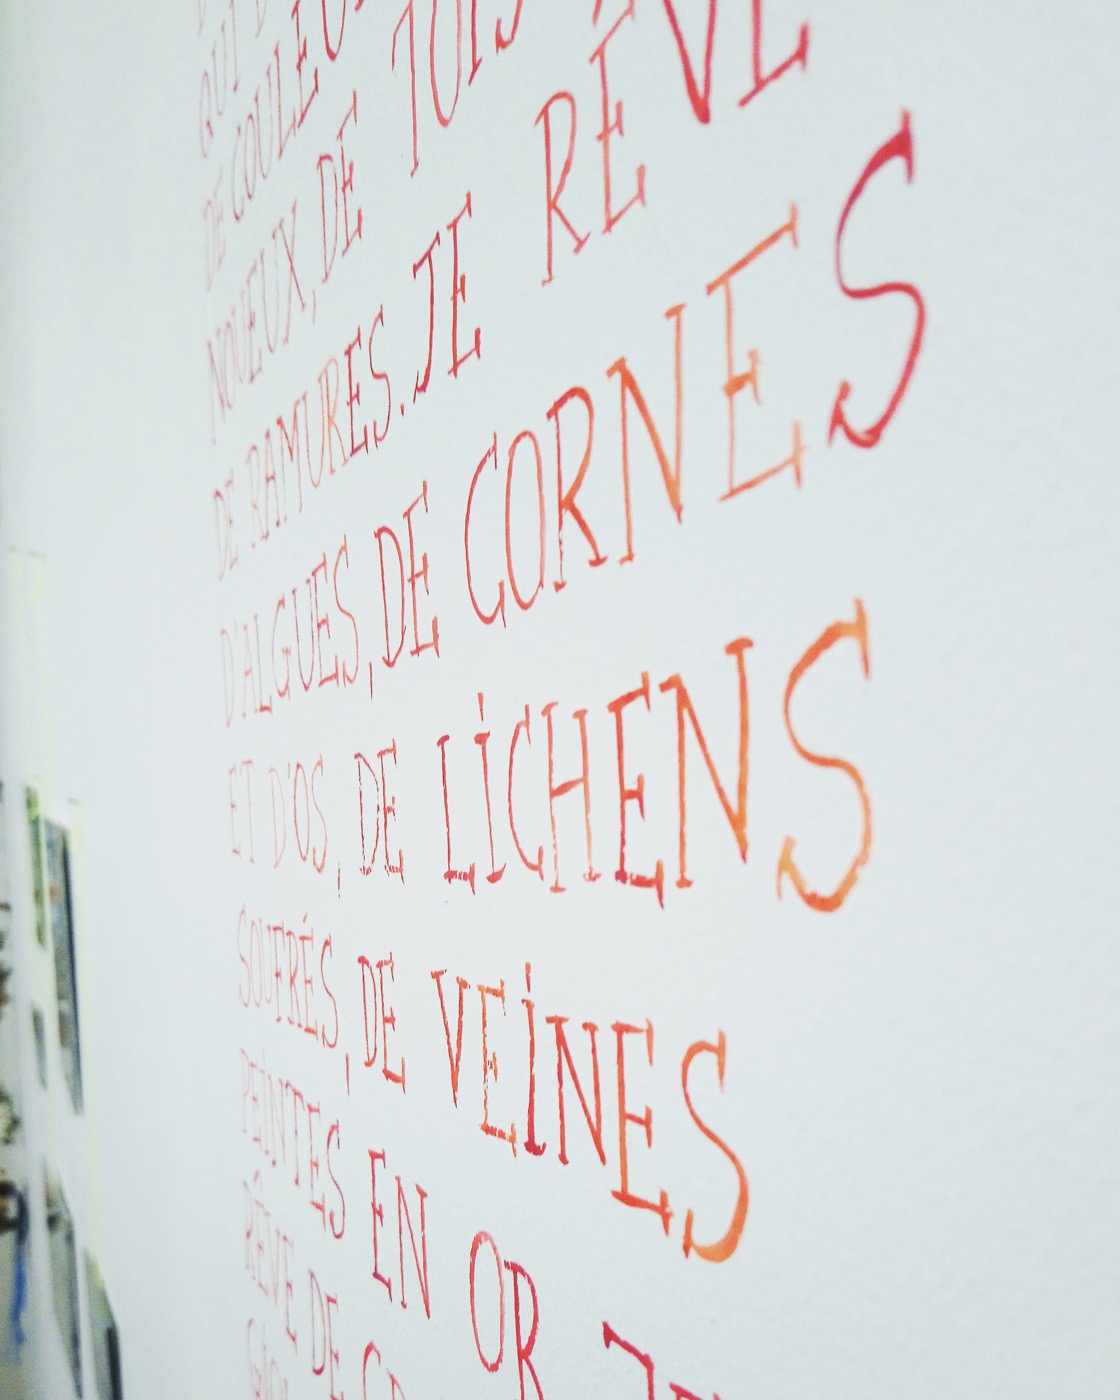 QUI
DE COULEU
NOUEUX, DE TOIS
DE RAMURES. JE RÊVE
D'ALGUES, DE CORNES
ET D'OS, DE LICHENS
SOUFRÉS, DE VEINES
PEINTES EN OR
RÊVE DE